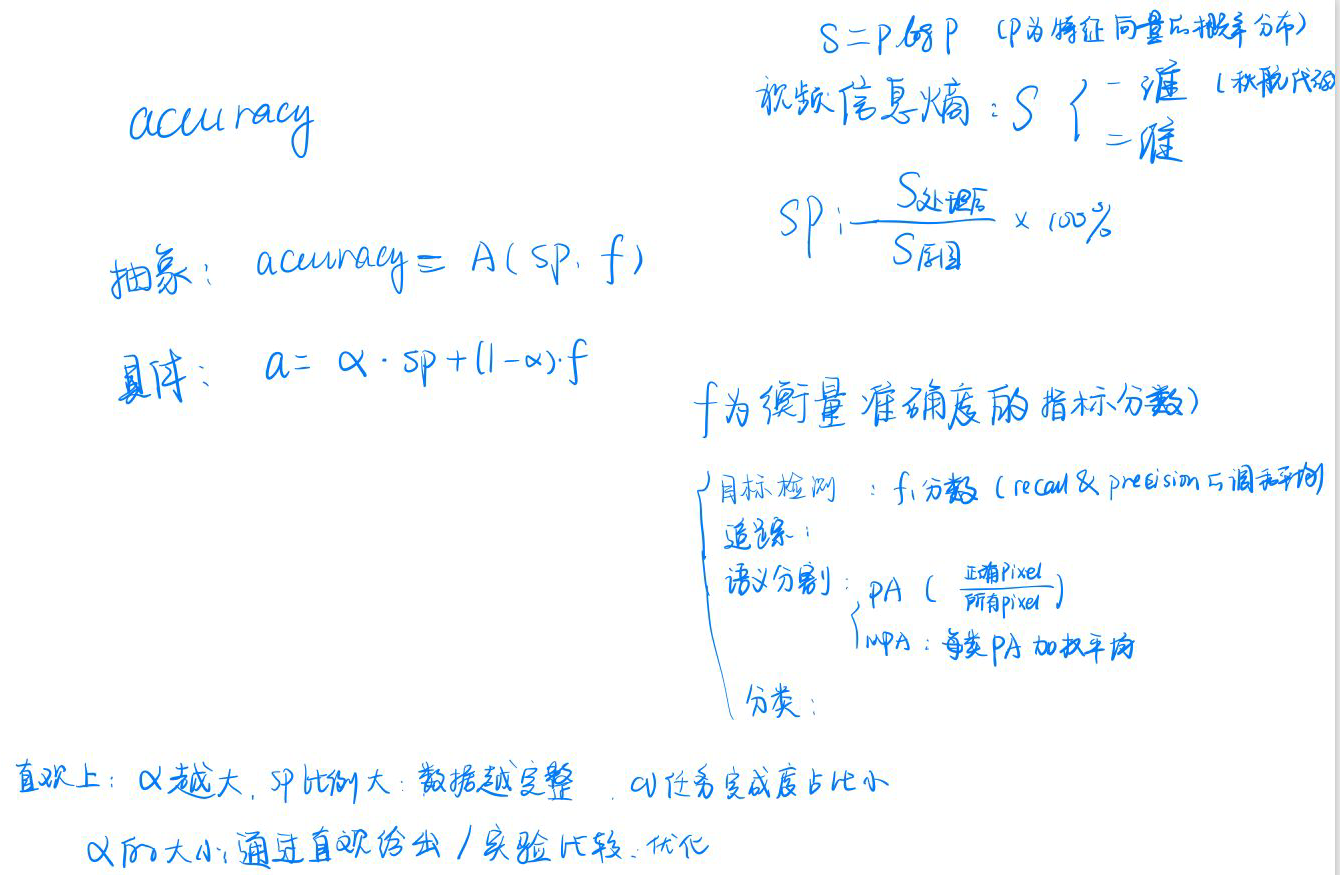 S = P log P (P为特征向量的概率分布)
accuracy
视频信息熵: S { 一维 (秋航代码
二维
SP: S处理后 / S原图 × 100%
抽象: accuracy = A(SP, f)
具体: a = α · sp + (1-α)·f
f为衡量准确度的指标分数)
目标检测 : f1分数 (recall & precision的调和平均)
追踪:
语义分割: PA ( 正确pixel / 所有pixel )
MPA: 每类PA加权平均
分类:
直观上: α越大, SP比例大: 数据越完整, CV任务完成度占比小
α的大小: 通过直观给出 / 实验比较、优化